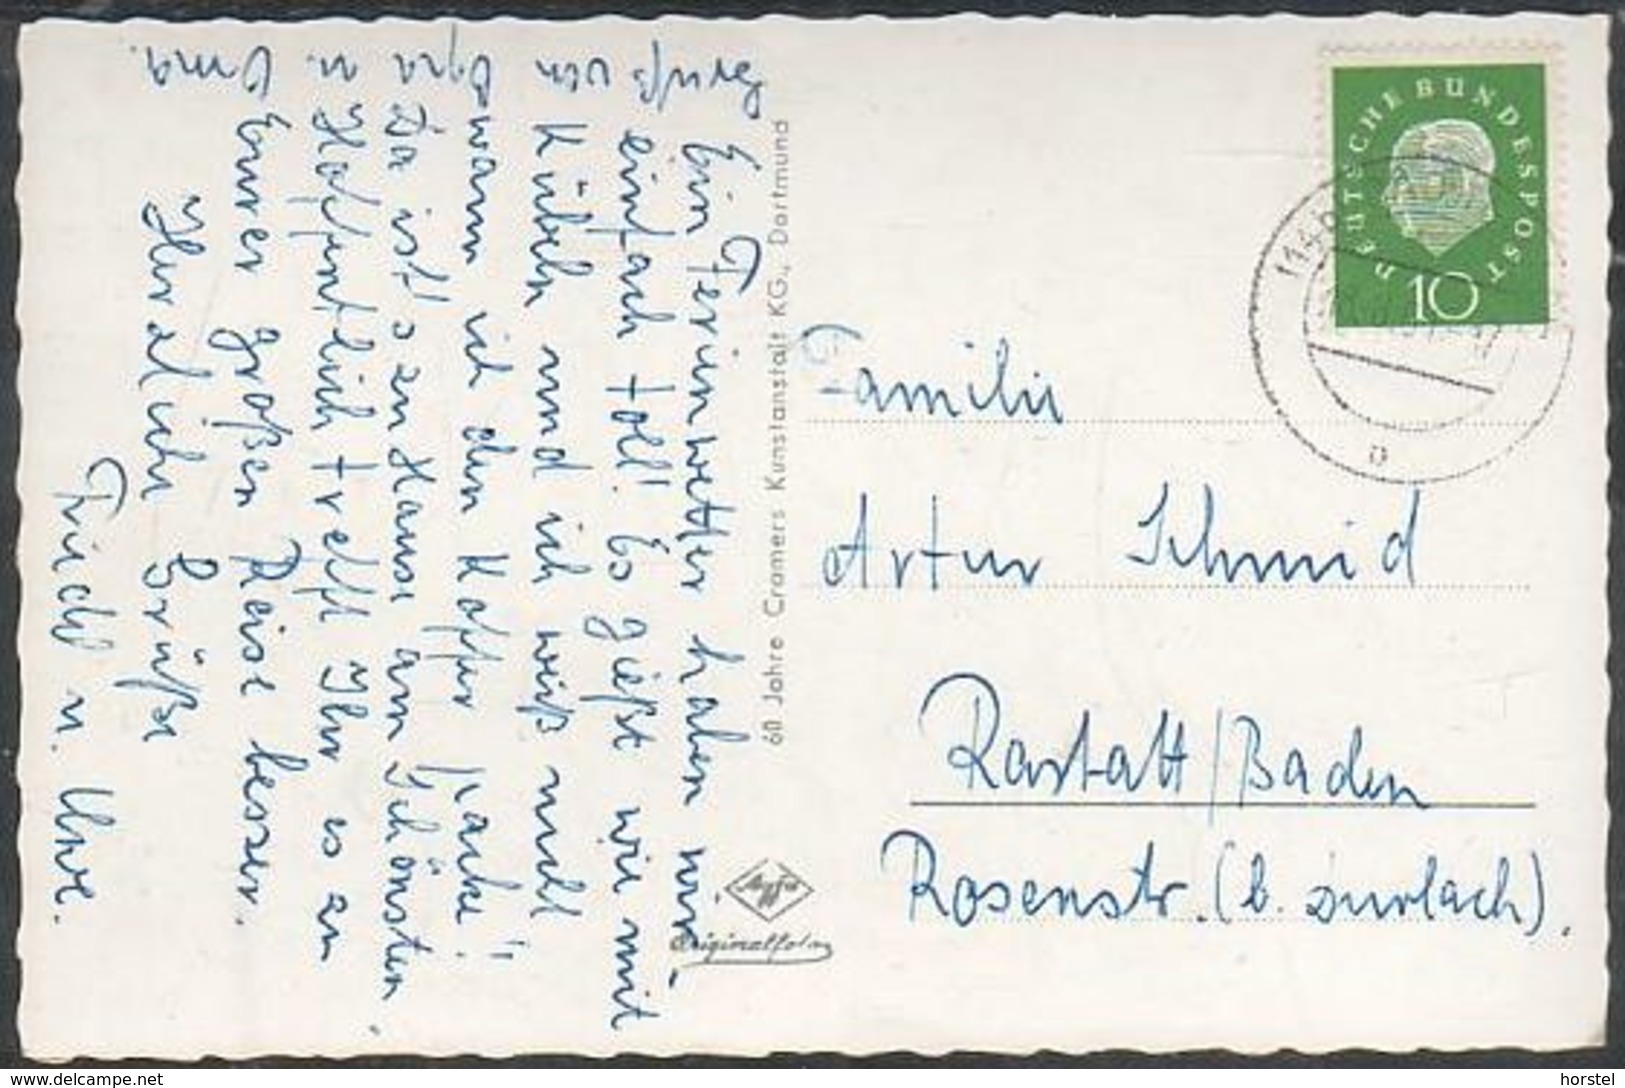 Ein Ferienwetter haben wir –
einfach toll! Es gießt wie mit
Kübeln und ich weiß nicht
wann ich den Koffer packe!
Da ist's zu Hause am Schönsten.
Hoffentlich trefft Ihr es an
Eurer großen Reise besser.
Herzliche Grüße
Friedl u. Uwe.
gruß von
Opa u.
Oma.
60 Jahre Cramers Kunstanstalt KG., Dortmund
Agfa
Originalfoto
DEUTSCHE BUNDESPOST
10
Familie
Artur Schmid
Rastatt/Baden
Rosenstr. (b. Durlach).
delcampe.net
horstel